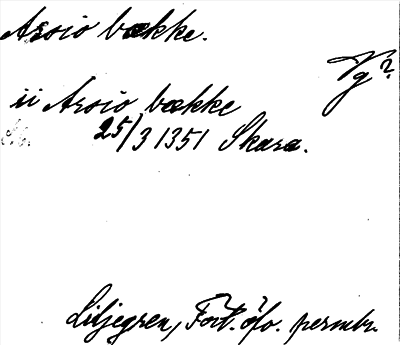 Arsio bække.
Vg?
ii Arsio bække
25/3 1351 Skara.
Liljegren, Fort. öfv. permbr.